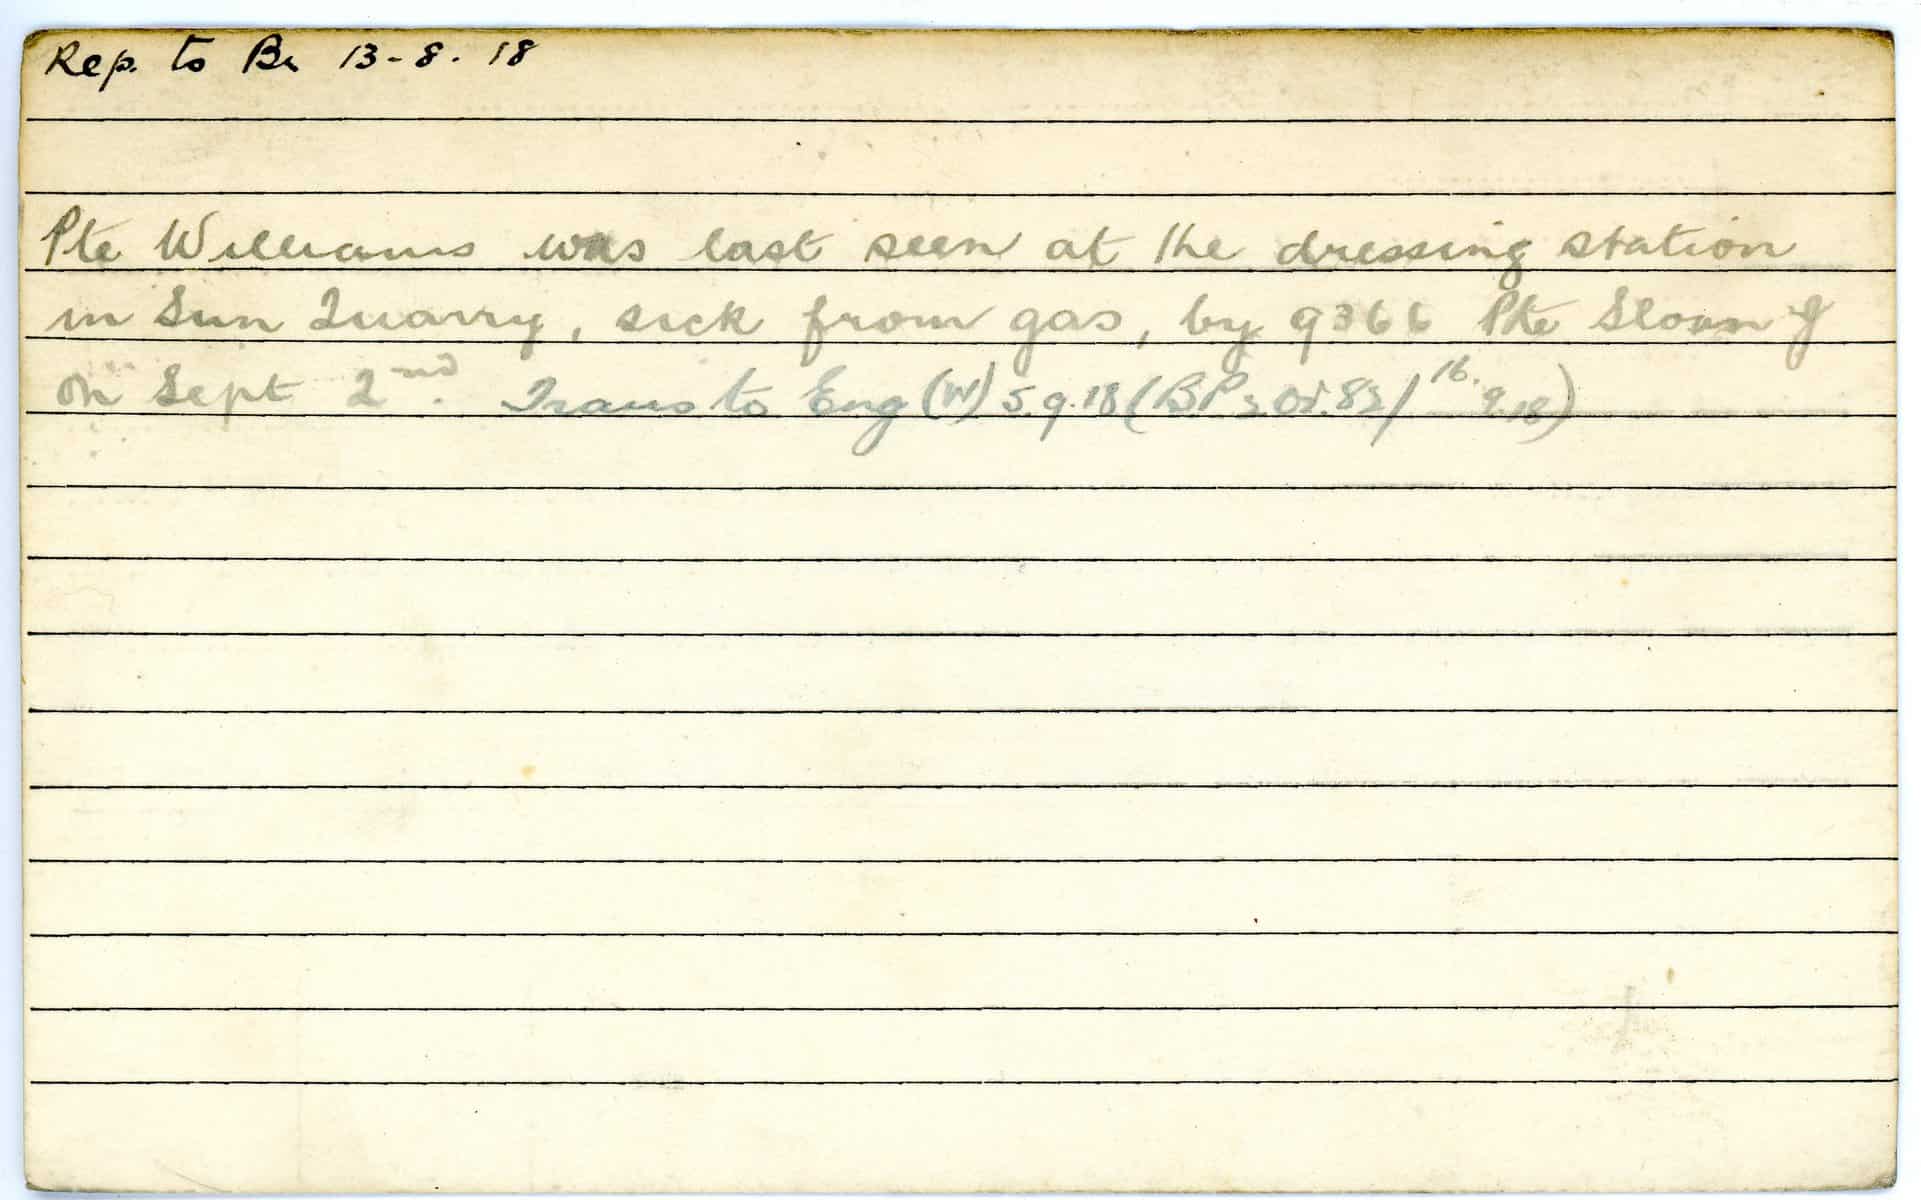 Rep. to Bn 13-8-18
Pte Williams was last seen at the dressing station
in Sun Quarry, sick from gas, by 9366 Pte Sloan J
on Sept 2nd. Trans to Eng (W) 5.9.18 (BP2 Or. 83/16.9.18)